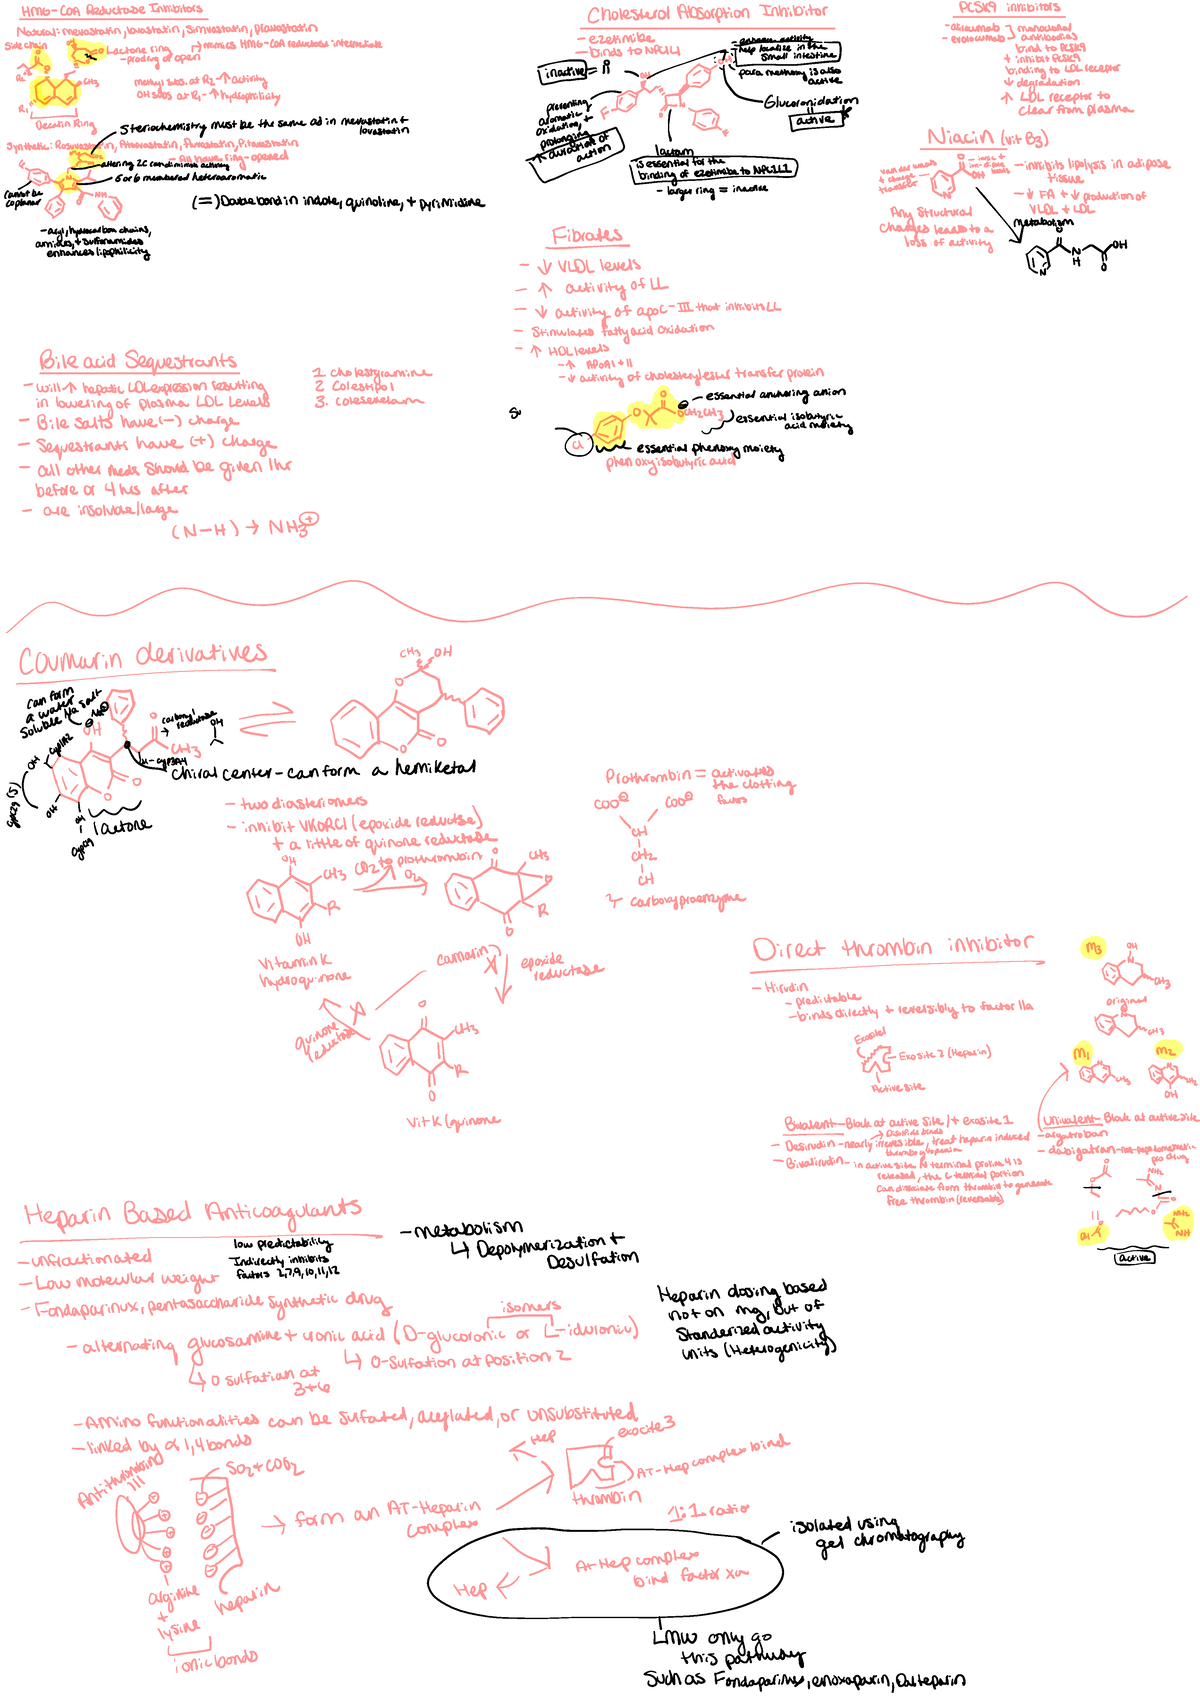 HMG-COA Reductase Inhibitors
Natural: mevastatin, lovastatin, simvastatin, pravastatin
Side chain
Lactone ring
mimics HMG-COA reductase intermediate
- prodrug or open
methyl subs. at R2 - ↑ activity
OH subs at R1 - ↑ hydrophilicity
R1
CH3
Decalin Ring
Steriochemistry must be the same ad in mevastatin +
lovastatin
Synthetic: Rosuvastatin, Atorvastatin, Fluvastatin, Pitavastatin
- All have ring-opened
- altering 2C can diminish activity
5 or 6 membered heteroaromatic
cannot be
coplanar
(=) Double bond in indole, quinoline, + pyrimidine
- aryl, hydrocarbon chains,
amides, + sulfonamides
enhances lipophilicity
Cholesterol Absorption Inhibitor
- ezetimibe
- binds to NPC1L1
enhances activity
help localize in the
small intestine
para methoxy is also
active
inactive = R
Glucoronidation
=
active
preventing
aromatic
oxidation, +
prolonging
↑ duration of
action
F
lactam
is essential for the
binding of ezetimibe to NPC1L1
- larger ring = inactive
PCSK9 inhibitors
- alirocumab
- evolocumab
monoclonal
antibodies
bind to PCSK9
+ inhibit PCSK9
binding to LDL receptor
↓ degradation
↑ LDL receptor to
clear from plasma
Niacin (vit B3)
van der waals
+ charge
transfer
ionic +
ion-dipole
bonds
OH
N
- inhibits lipolysis in adipose
tissue
- ↓ FA + ↓ production of
VLDL + LDL
Any Structural
changes leads to a
loss of activity
metabolism
O
N
H
OH
O
N
Fibrates
- ↓ VLDL levels
- ↑ activity of LL
- ↓ activity of apoC-III that inhibits LL
- Stimulates fatty acid oxidation
- ↑ HDL levels
- ↑ APoA1 + II
- ↓ activity of cholesteryl ester transfer protein
Su
essential anchoring anion
OCH2CH3
essential isobutyric
acid moiety
Cl
essential phenoxy moiety
phenoxyisobutyric acid
Bile acid Sequestrants
- will ↑ hepatic LDL expression resulting
in lowering of plasma LDL levels
- Bile salts have (-) charge
- Sequestrants have (+) charge
- all other meds should be given 1hr
before or 4 hrs after
- are insoluble/large
(N-H) → NH3 +
1. Cholestyramine
2. Colestipol
3. Colesevelam
Coumarin derivatives
can form
a water
soluble Na salt
Na
OH
CYP1A2
carbonyl
reductase
OH
CH3
- CYP3A4
chiral center - can form a hemiketal
OH
OH
OH
lactone
CYP2C9
CH3
OH
O
O
O
- two diasteriomers
- inhibit VKORC1 (epoxide reductase)
+ a little of quinone reductase
CO2 to prothrombin
O2
OH
CH3
R
OH
Vitamin K
hydroquinone
O
CH3
O
R
O
coumarin
epoxide
reductase
quinone
reductase
O
CH3
R
O
Vit K (quinone
Prothrombin = activates
the clotting
factors
COO⊖ COO⊖
CH
CH2
CH
γ carboxyproenzyme
Direct thrombin inhibitor
- Hirudin
- predictable
- binds directly + reversibly to factor IIa
Exosite1
Exosite 2 (Heparin)
Active site
Bivalent - Block at active site / + exosite 1
Disulfide bonds
- Desirudin - nearly irreversible, treat heparin induced
thrombocytopenia
- Bivalirudin - in active site N terminal proline 4 is
released, the C terminal portion
can dissociate from thrombin to generate
free thrombin (reversable)
M3
OH
N
CH3
original
CH3
M1
CH3
M2
CH3
OH
Univalent - Block at active site
- argatroban
- dabigatran - non-peptidomimetic
pro drug
NH2
NH2
NH
active
Heparin Based Anticoagulants
- unfractionated
low predictability
Indirectly inhibits
factors 2,7,9,10,11,12
- Low molecular weight
- Fondaparinux, pentasaccharide synthetic drug
- metabolism
↳ Depolymerization +
Desulfation
isomers
- alternating glucosamine + uronic acid (D-glucoronic or L-iduronic)
↳ O-sulfation at position 2
↳ O sulfation at
3+6
Heparin dosing based
not on mg, but of
Standerized activity
units (Heterogenicity)
- Amino functionalities can be sulfated, acylated, or unsubstituted
- linked by α 1,4 bonds
Antithrombin
SO2 + COO2
→ form an AT-Heparin
complex
arginine
+
lysine
heparin
ionic bonds
Hep
exocite 3
AT-Hep complex bind
thrombin
1:1 ratio
At-Hep complex
bind factor xa
Hep
isolated using
gel chromatography
LMW only go
this pathway
Such as Fondaparinux, enoxaparin, Dalteparin